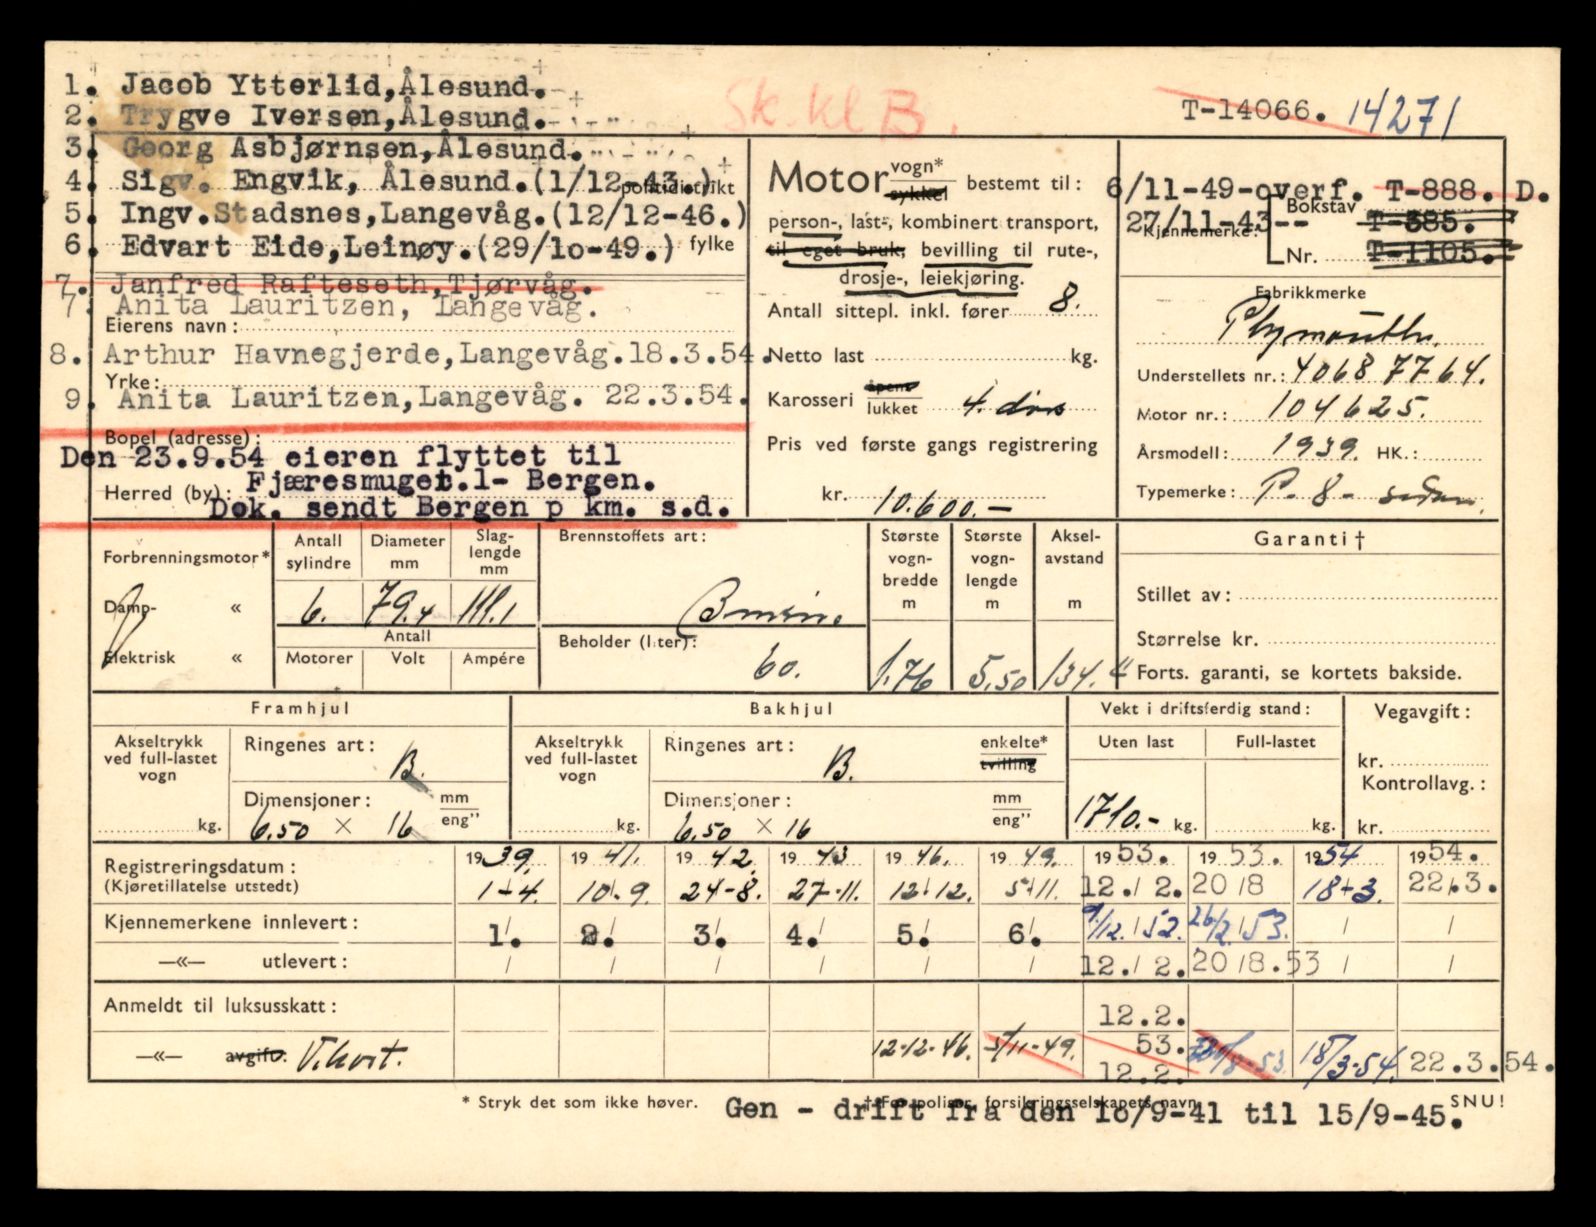 1. Jacob Ytterlid,Ålesund.
2. Trygve Iversen,Ålesund.
3. Georg Asbjørnsen,Ålesund.
4. Sigv. Engvik, Ålesund.(1/12-43.) politidistrikt
5. Ingv.Stadsnes,Langevåg.(12/12-46.)
6. Edvart Eide,Leinøy.(29/1o-49.) fylke
7. Janfred Rafteseth,Tjørvåg.
7. Anita Lauritzen, Langevåg.
Eierens navn:
8. Arthur Havnegjerde,Langevåg.18.3.54.
Yrke:
9. Anita Lauritzen,Langevåg. 22.3.54.
Bopel (adresse):
Den 23.9.54 eieren flyttet til
Fjæresmuget.1- Bergen.
Herred (by):
Dok. sendt Bergen p km. s.d.
Sk.kl B.
T-14066. 14271
Motor vogn* sykkel bestemt til:
person-, last-, kombinert transport,
til eget bruk, bevilling til rute-,
drosje-, leiekjøring.
Antall sittepl. inkl. fører 8.
Netto last kg.
Karosseri åpent lukket 4. dørs
Pris ved første gangs registrering
kr. 10.600.-
6/11-49-overf. T-888. D.
Bokstav
27/11-43-- T-385.
Kjennemerke:
Nr. T-1105.
Fabrikkmerke
Plymouth.
Understellets nr.: 40687764.
Motor nr.: 104625.
Årsmodell: 1939. HK.:
Typemerke: P-8- sedan.
Forbrenningsmotor*
Damp- «
Elektrisk «
Antall sylindre
6.
Diameter mm
79.4
Slaglengde mm
111.1
Antall
Motorer Volt Ampére
Brennstoffets art:
Bensin.
Beholder (liter):
60.
Største vognbredde m
1.76
Største vognlengde m
5.50
Akselavstand m
134."
Garanti †
Stillet av:
Størrelse kr.
Forts. garanti, se kortets bakside.
Framhjul
Akseltrykk ved full-lastet vogn
kg.
Ringenes art: B.
Dimensjoner: mm eng"
6.50 × 16
Bakhjul
Akseltrykk ved full-lastet vogn
kg.
Ringenes art: B. enkelte* tvilling
Dimensjoner: mm eng"
6.50 × 16
Vekt i driftsferdig stand:
Uten last Full-lastet
1710.- kg. kg.
Vegavgift:
kr.
Kontrollavg.:
kr.
Registreringsdatum: 1939. 1941. 1942. 1943 1946. 1949. 1953. 1953. 1954 1954.
(Kjøretillatelse utstedt) 1-4. 10-9. 24-8. 27-11. 12-12. 5-11. 12./2. 20/8 18-3. 22.3.
Kjennemerkene innlevert: 1. 2. 3. 4. 5. 6. 9/12./52. 26/2./53.
—«— utlevert: 12./2. 20/8.53
Anmeldt til luksusskatt: 12.2.
53.
—«— avgift: V.kort. 12-12-46. 5/11-49. 12.2. 18/3-54. 22.3.54.
* Stryk det som ikke høver. † For poliser, forsikringsselskapets navn. SNU!
Gen - drift fra den 1o/9-41 til 15/9-45.